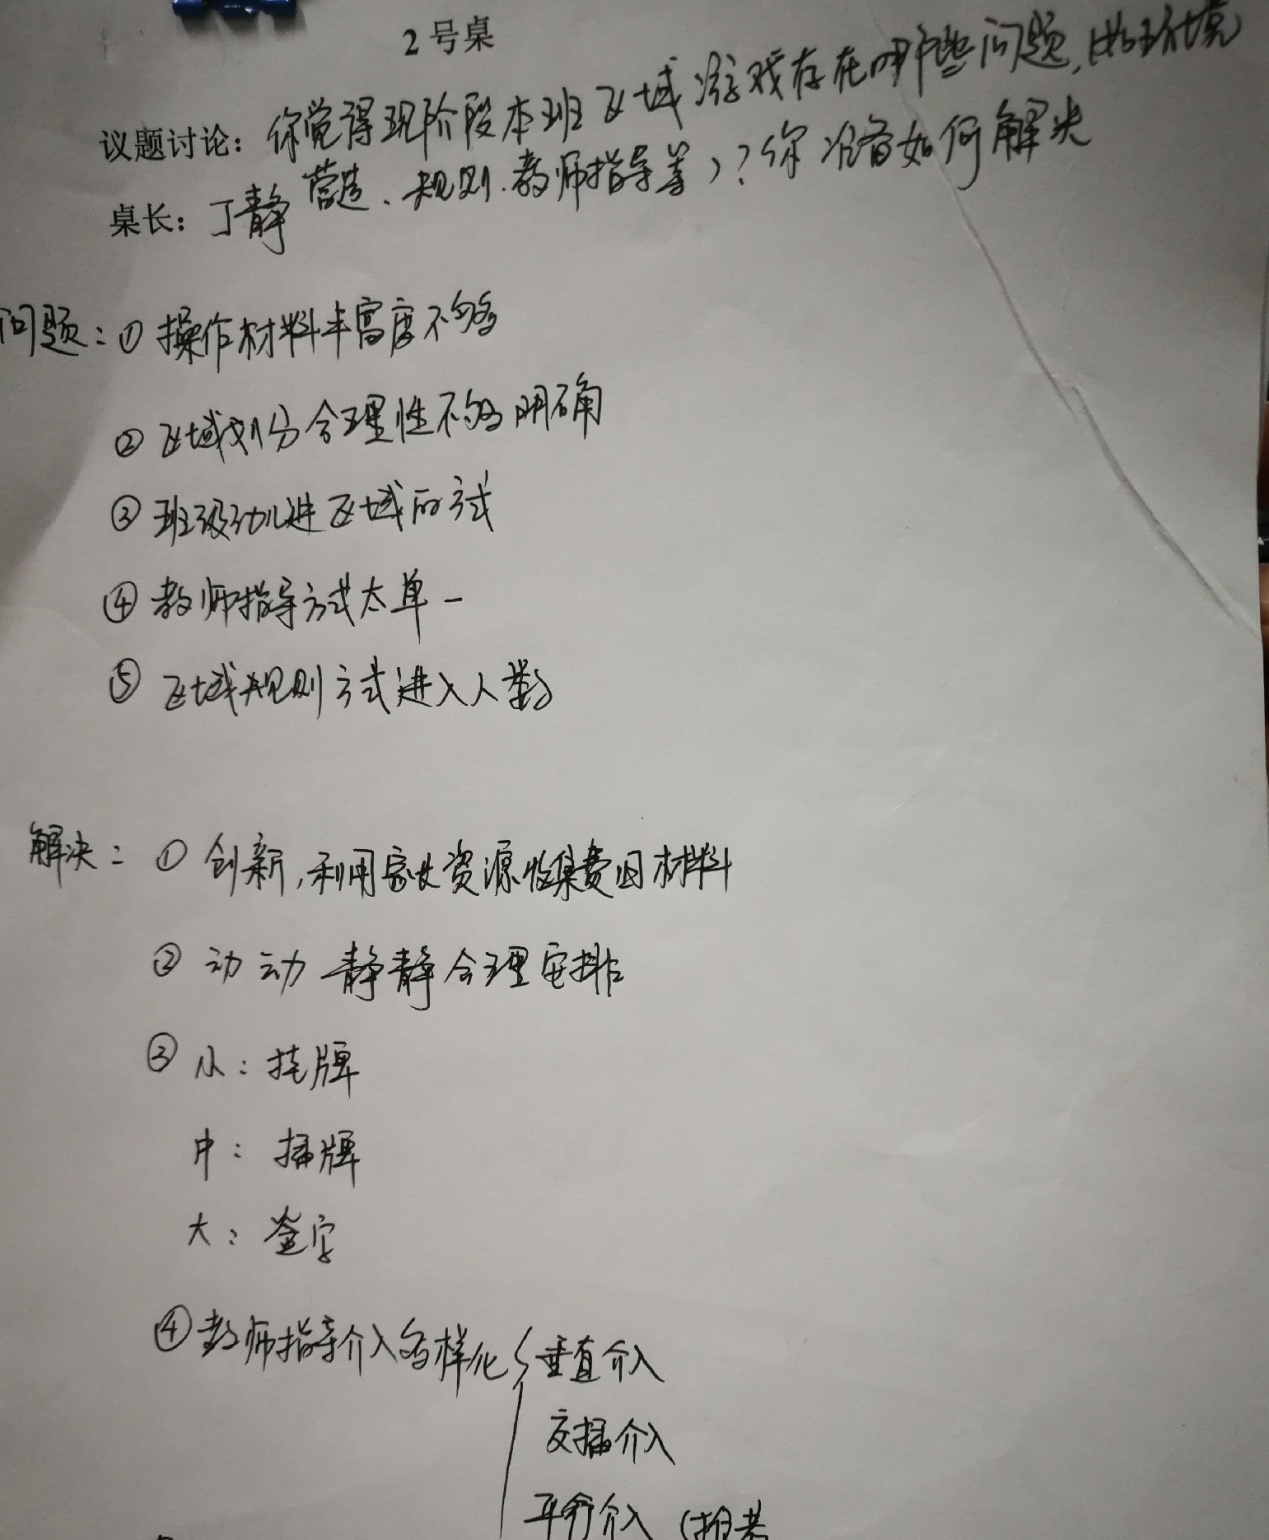 2号桌
议题讨论：你觉得现阶段本班区域游戏存在哪些问题，（如环境
营造、规则、教师指导等）？你准备如何解决
桌长：丁静
问题：① 操作材料丰富度不够
② 区域划分合理性不够明确
③ 班级幼儿进区域方式
④ 教师指导方式太单一
⑤ 区域规则方式进入人数
解决：① 创新，利用家长资源收集费旧材料
② 动动 静静合理安排
③ 小：挂牌
中：插牌
大：签字
④ 教师指导介入多样化 垂直介入
交插介入
平行介入